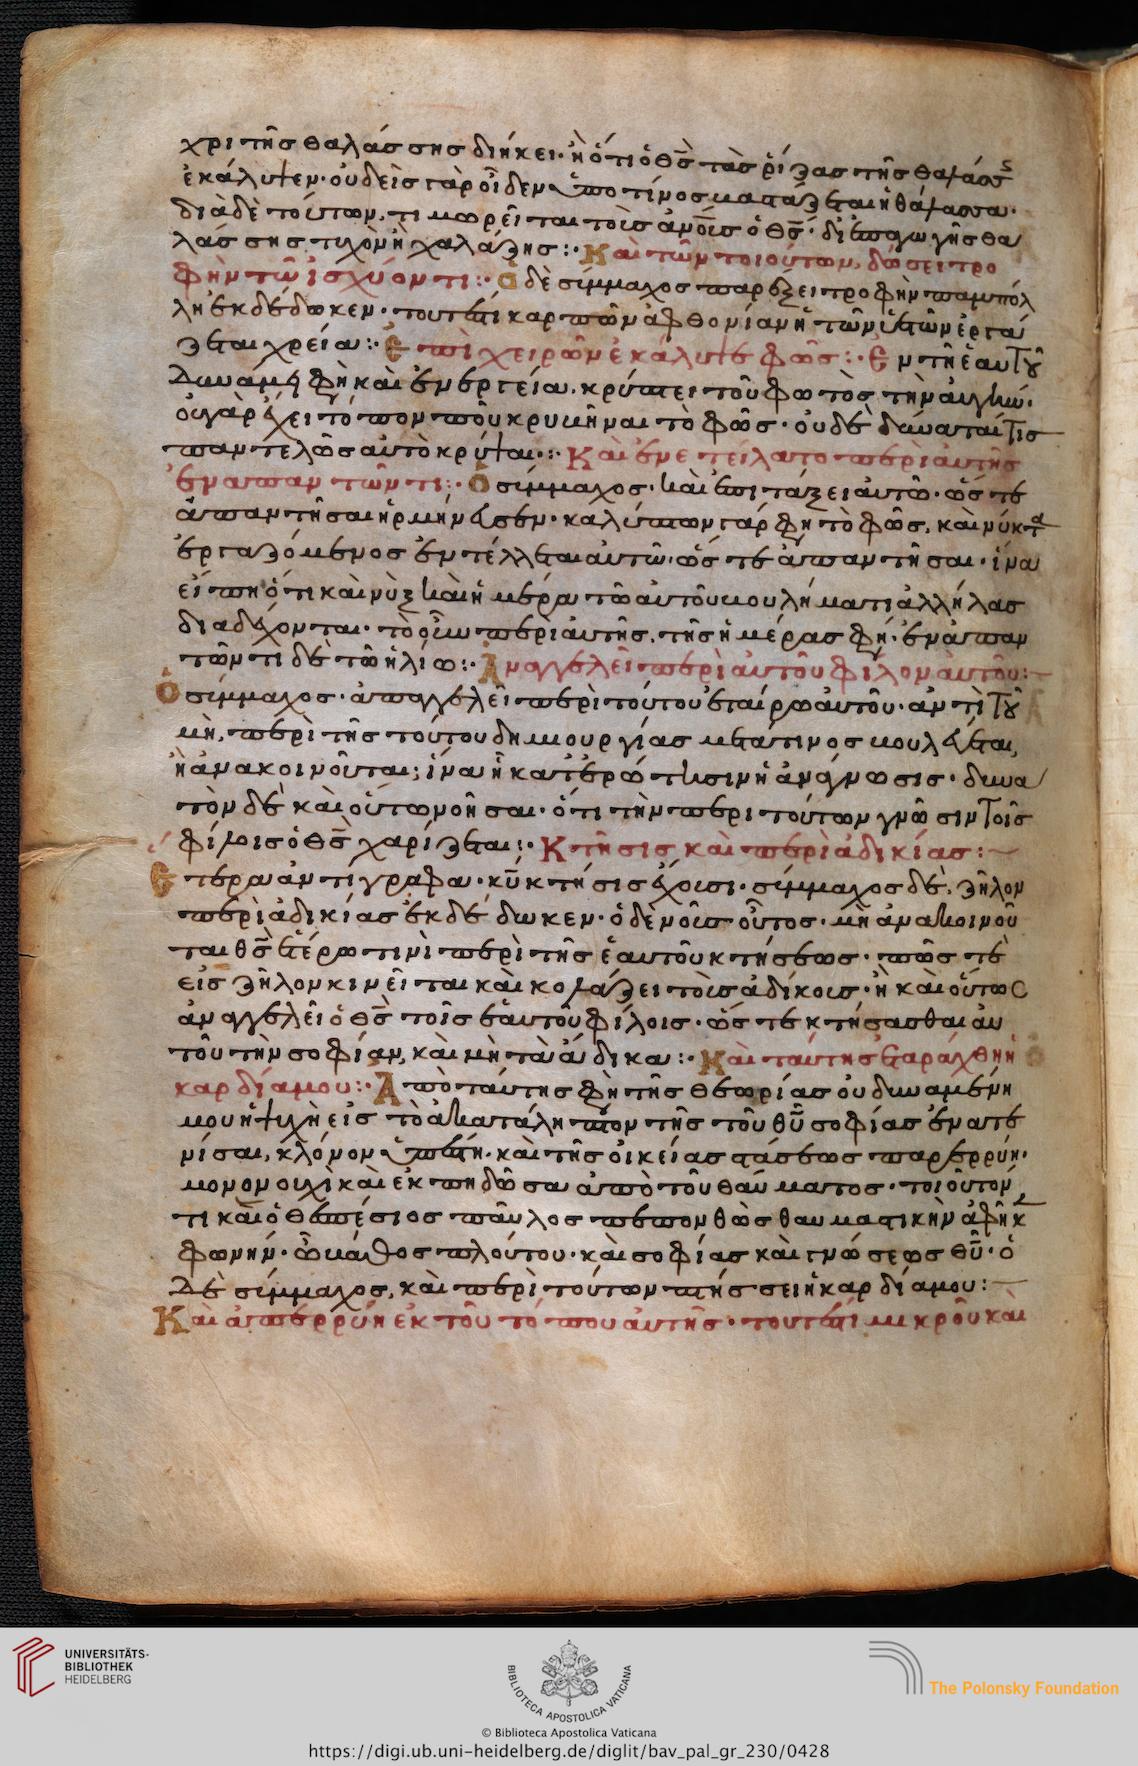 χρι τῆς θαλάσσης διήκει· ἢ ὅτι ὁ θς τὰς ῥίζας τῆς θαλάσς
ἐκάλυψεν· οὐδεὶς γὰρ οἶδεν ὑπό τινος βαστάζεται ἡ θάλασσα·
διὰ δὲ τούτων, τιμωρεῖται τοὺς ἀνους ὁ θς· δι' ἐπαγωγῆς θα
λάσσης τυχὸν ἢ χαλάζης:· Καὶ τῶν τοιούτων, δώσει τρο
φὴν τῷ ἰσχύοντι:· Ὁ δὲ σύμμαχος παρέξει τροφὴν παμπόλ
λη ἐκδέδωκεν· τουτέστι καρπῶν ἀφθονίαν ἢ τῶν ὑετῶν ἐργά
ζεται χρεία:· Ἐπὶ χειρῶν ἐκάλυψε φῶς:· Ἐν τῇ ἑαυτοῦ
δυνάμει φὴ καὶ ἐνεργεία, κρύπτει τοῦ φωτὸς τὴν αὐγὴν·
οὐ γὰρ ἔχει τόπον ποῦ κρυβῆναι τὸ φῶς· οὐδὲ δύναταί τις
παντελῶς αὐτὸ κρύψαι:· Καὶ ἐνετείλατο περὶ αὐτῆς
ἐν ἀπαντῶντι:· Ὁ σύμμαχος· καὶ ἐπιτάξει αὐτῷ· ὥς τε
ἀπαντῆσαι ἡρμήνευσεν· καλύπτων γάρ φη τὸ φῶς, καὶ νύκτα
ἐργαζόμενος ἐντέλλεται αὐτῷ· ὥς τε ἀπαντῆσαι· ἵνα
εἴπη ὅτι καὶ νὺξ καὶ ἡμέρα τῶ αὐτοῦ βουλήματι ἀλλήλας
διαδέχονται· τὸ οὖν περὶ αὐτῆς, τῆς ἡμέρας φη· ἐν ἀπαν
τῶντι δὲ τῷ ἡλίω:· Ἀναγγελεῖ περὶ αὐτοῦ φίλον αὐτοῦ:
Ὁ σύμμαχος· ἀπαγγελεῖ περὶ τούτου ἑταίρω αὐτοῦ· ἀντὶ τοῦ
μὴ, περὶ τῆς τούτου δημιουργίας μετά τινος βουλεύεται,
ἢ ἀνακοινοῦται; ἵνα ἢ κατ' ἐρώτησιν ἡ ἀνάγνωσις· δυνα
τὸν δὲ καὶ οὕτω νοῆσαι· ὅτι τὴν περὶ τούτων γνῶσιν τοῖς
φίλοις ὁ θς χαρίζεται:· Κτῆσις καὶ περὶ ἀδικίας:
Ἕτερα ἀντίγραφα· κὺν κτήσις ἔχουσι· σύμμαχος δὲ, ζῆλον
περὶ ἀδικίας ἐκδέδωκεν· ὁ δὲ νοῦς οὗτος· μὴ ἀνακοινοῦ
ται θς ἑτέρω τινὶ περὶ τῆς ἑαυτοῦ κτήσεως· πῶς τὲ
εἰς ζῆλον κινεῖται καὶ κολάζει τοὺς ἀδίκους· ἢ καὶ οὕτως
ἀναγγελεῖ ὁ θς τοῖς ἑαυτοῦ φίλοις· ὥς τε κτήσασθαι αὐ
τοῦ τὴν σοφίαν, καὶ μὴ τὰ ἄδικα:· Καὶ ταύτης ἐταράχθη ἡ
καρδία μου:· Ἀπὸ ταύτης φὴ τῆς θεωρίας οὐ δυναμένη
μου ἡ ψυχὴ εἰς τὸ ἀκατάληπτον τῆς τοῦ θυ σοφίας ἐνατε
νίσαι, κλόνον ὑπέστη· καὶ τῆς οἰκείας στάσεως παρερρύη·
μονονουχὶ καὶ ἐκπηδῶσα ἀπὸ τοῦ θαύματος· τοιοῦτόν
τι καὶ ὁ θεσπέσιος παῦλος πεπονθὼς θαυμαστικὴν ἀφῆκε
φωνήν· ὦ βάθος πλούτου· καὶ σοφίας καὶ γνώσεως θυ· ὁ
δὲ σύμμαχος, καὶ περὶ τούτων πτήσσει ἡ καρδία μου:
Καὶ ἀπερρύη ἐκ τοῦ τόπου αὐτῆς· τουτέστι μικροῦ καὶ
UNIVERSITÄTS-
BIBLIOTHEK
HEIDELBERG
BIBLIOTECA APOSTOLICA VATICANA
The Polonsky Foundation
© Biblioteca Apostolica Vaticana
https://digi.ub.uni-heidelberg.de/diglit/bav_pal_gr_230/0428